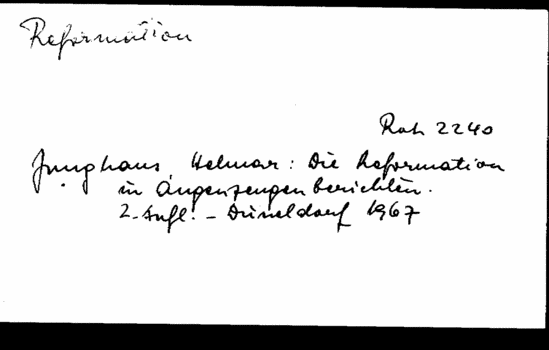 Reformation
Rah 2240
Junghans, Helmar: Die Reformation
in Augenzeugenberichten.
2. Aufl. - Düsseldorf 1967